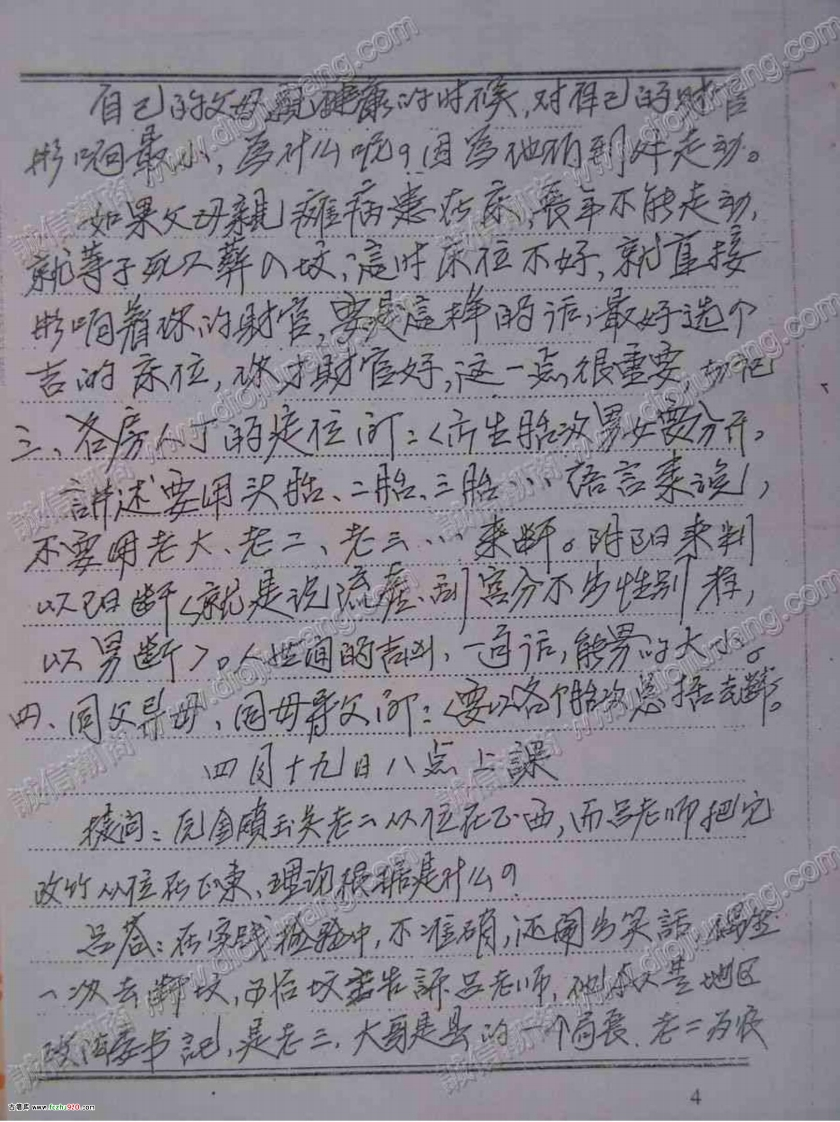 自己的父母亲健康的时候,对自己的财官
影响最小,為什么呢?因為他们到处走动。
如果父母親瘫病患在床,長年不能走动,
就等于死人葬入坟,這时床位不好,就直接
影响着你的財官,要是這样的话,最好选个
吉的床位,你才財官好,这一点很重要,切记
三、各房人丁的定位 <所生胎次男女要分开。
講述要用头胎、二胎、三胎…語言来说,
不要用老大、老二、老三…来断。阴阳来判
以阳断<就是说流產、刮宫分不出性别者,
以男断>。人世间的吉凶,一通话,能男的大小。
四、同父异母,同母异父:<要以各个胎次总括去断。
四月十九日八点上課
提问:兑金頭 老二从位在正西,而吕老师把它
改 从位在正東,理论根据是什么?
吕答:在实践 中,不准确,还闹出笑話,偶然
一次去断坟,而后坟主告訴吕老师,他 某地区
政法委书記,是老三,大哥是县的一个局長,老二为农
4
誠信潮商 www.diqiuxiang.com
古籍库 www.fczhu920.com